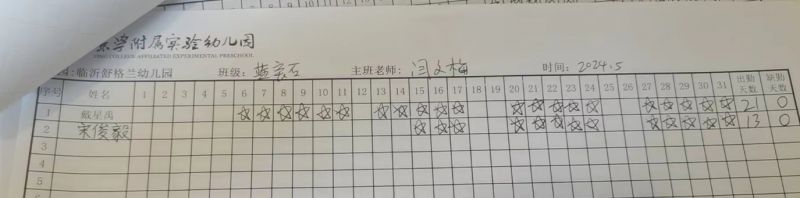 京学附属实验幼儿园
COLLEGE AFFILIATED EXPERIMENTAL PRESCHOOL
临沂舒格兰幼儿园 班级: 蓝宝石 主班老师: 闫文梅 时间: 2024.5
序号 姓名 1 2 3 4 5 6 7 8 9 10 11 12 13 14 15 16 17 18 19 20 21 22 23 24 25 26 27 28 29 30 31 出勤天数 缺勤天数
1 戴星禹 ☆ ☆ ☆ ☆ ☆ ☆ ☆ ☆ ☆ ☆ ☆ ☆ ☆ ☆ ☆ ☆ ☆ ☆ ☆ ☆ 21 0
2 宋俊毅 ☆ ☆ ☆ ☆ ☆ ☆ ☆ ☆ ☆ ☆ ☆ ☆ ☆ 13 0
3
4
5
6